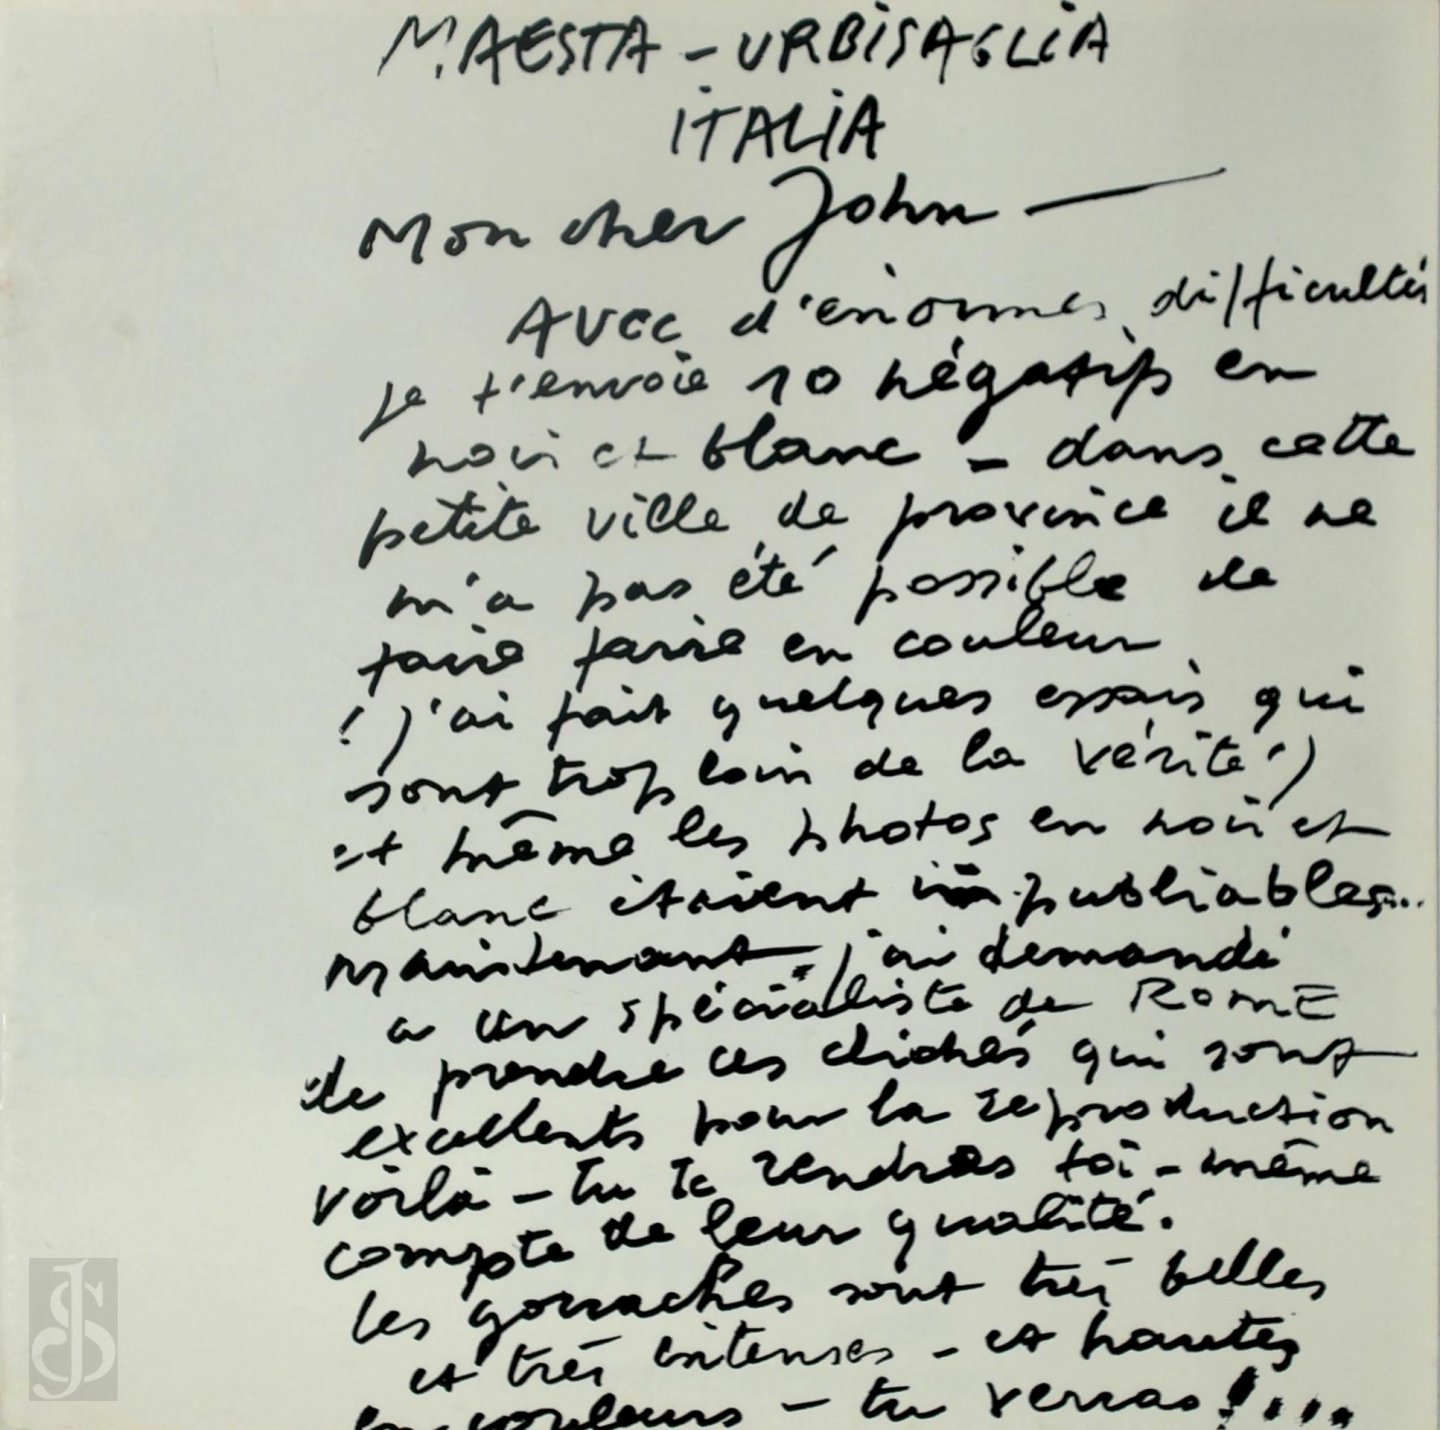 MAESTA - URBISAGLIA
ITALIA
Mon cher John —
Avec d'énormes difficultés
je t'envoie 10 négatifs en
noir et blanc - dans cette
petite ville de province il ne
m'a pas été possible de
faire faire en couleur
(j'ai fait quelques essais qui
sont trop loin de la vérité!)
et même les photos en noir et
blanc étaient impubliables...
Maintenant j'ai demandé
a un spécialiste de ROME
de prendre ces clichés qui sont
excellents pour la reproduction
voilà - tu te rendras toi-même
compte de leur qualité.
les gouaches sont très belles
et très intenses - et hautes
en couleurs - tu verras !...
JS